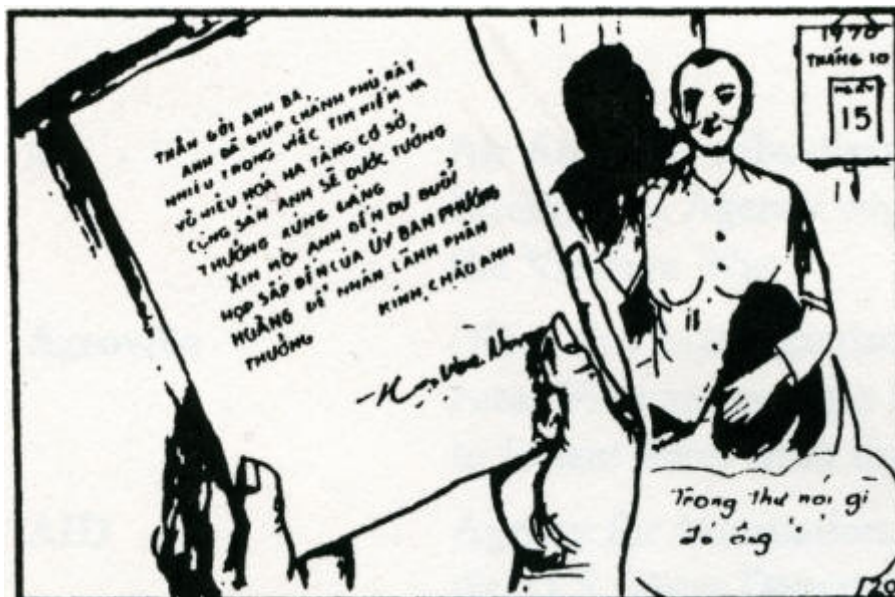 THÂN GỞI ANH BA,
ANH ĐÃ GIÚP CHÁNH PHỦ RẤT
NHIỀU TRONG VIỆC TÌM KIẾM VÀ
VÔ HIỆU HOÁ HẠ TẦNG CƠ SỞ,
CỘNG SẢN ANH SẼ ĐƯỢC TƯỞNG
THƯỞNG XỨNG ĐÁNG
XIN MỜI ANH ĐẾN DỰ BUỔI
HỌP SẮP ĐẾN CỦA ỦY BAN PHƯỢNG
HOÀNG ĐỂ NHẬN LÃNH PHẦN
THƯỞNG KÍNH CHÀO ANH
1970
THÁNG 10
NGÀY
15
Trong thư nói gì
đó ông
20